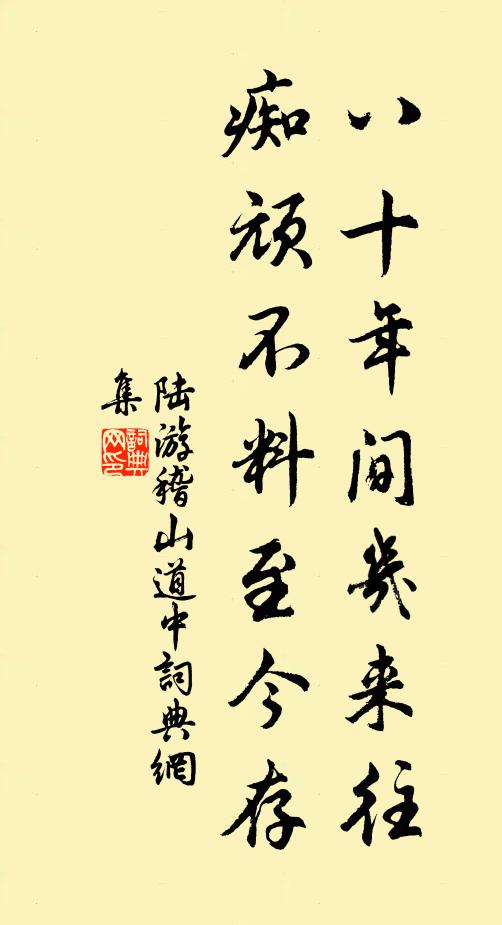 八十年间几来往
痴顽不料至今存
陆游稽山道中词典網
集
詞典
网印